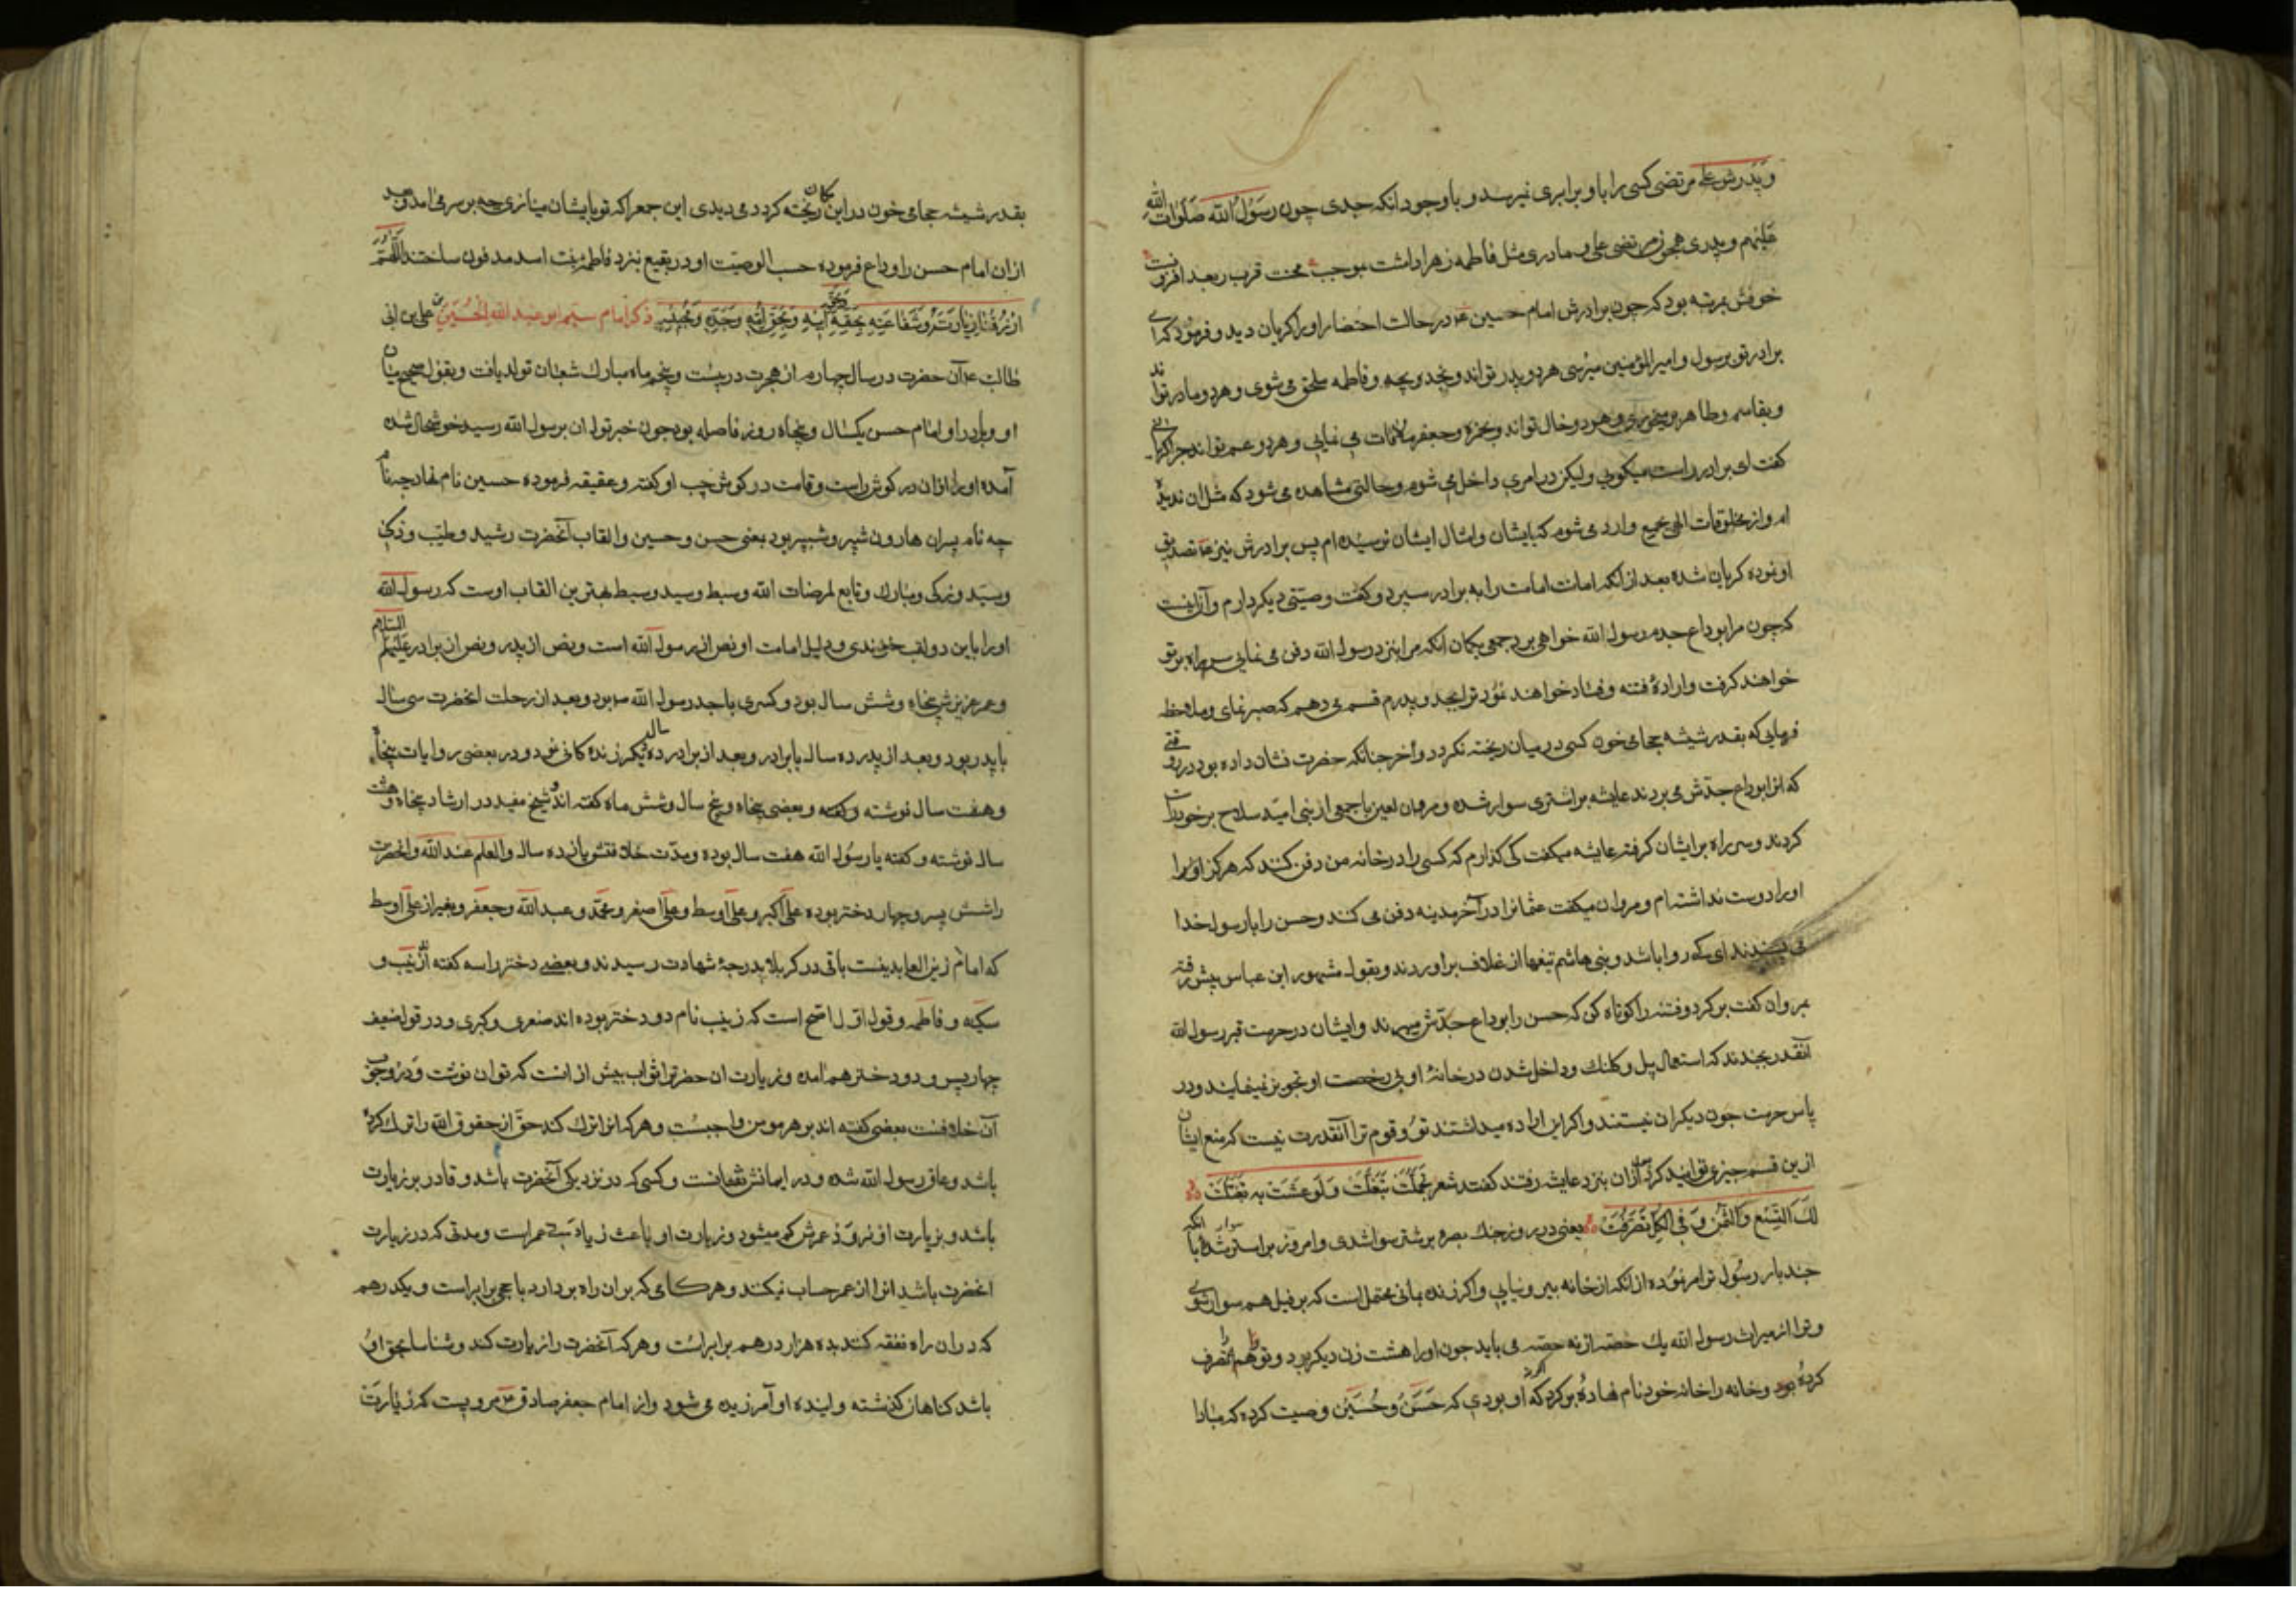 وپدرش علی مرتضی کسی را با او برابری نمیرسد و با وجود انکه جدی چون رسول الله صلوات الله
علیهم و پدری همچون مرتضی علی و مادری مثل فاطمه زهرا داشت بموجب محنت قرب ربعد افزونست
خوفش بمرتبه بود که چون برادرش امام حسین ع در حالت احتضار او را کریان دید و فرمود که ای
برادر تو برسول و امیرالمؤمنین میرسی هر دو پدر تواند و بخدیجه و فاطمه ملحق می شوی و هر دو مادر تواند
و بقاسم و طاهر میرسی و هر دو خال تواند و بحمزه و جعفر ملاقات می نمایی و هر دو عم تواند چرا کریانی
کفت ای برادر راست میکویی ولیکن در امری داخل می شوم و حالتی مشاهده می شود که مثل ان ندیده
ام و از مخلوقات الهی بجمع وارد می شوم که بایشان و امثال ایشان نرسیده ام پس برادرش نیز تصدیق
او نوده کریان شده بعد از انکه امانت امامت را به برادر سپرد و کفت وصیتی دیکر دارم و آن اینست
که چون مرا بوداع جدم رسول الله خواهی برد جمعی بکمان انکه مرا بنزد رسول الله دفن می نمایی سر راه بر تو
خواهند کرفت و ارادهٔ فتنه و فساد خواهند نمود ترا بجد و پدرم قسم می دهم که صبر نمای و ملاحظه
فرمایی که بقدر شیشه حجامی خون کسی در میان ریخته نکردد و آخر چنانکه حضرت نشان داده بود در وقتی
که انرا بوداع جدش می بردند عایشه بر اشتری سوار شده و مروان لعین با جمعی از بنی امیه سلاح بر خود راست
کردند و سر راه بر ایشان کرفته عایشه میکفت کی کذارم که کسی را در خانه من دفن کنند که هرکز او را
او را دوست نداشته ام و مروان میکفت عثمانرا در آخر مدینه دفن می کنند و حسن را با رسول خدا
می پسندند ای که روا باشد و بنی هاشم تیغها از غلاف براوردند و بقول مشهور ابن عباس پیش رفته
بمروان کفت برکرد و فتنه را کوتاه کن که حسن را بوداع جدش میبرند و ایشان در حرمت قبر رسول الله
آنقدر بجدند که استعمال بیل و کلنک و داخل شدن در خانهٔ او بی رخصت او تجویز نمینمایند و در
پاس حرمت چون دیکران نیستند و اکر این اراده میداشتند تو و قوم ترا آنقدرت نیست که منع ایشان
ازین قسم چیزی توانید کرد بعد ازان بنزد عایشه رفتند کفتند شعر تجملت تبغلت ولو عشت به تفیلت
لک التسع والثمن وفی الکل تصرفت یعنی در روز جنک بصره بر شتر سوار شدی و امروز بر استر سوار شدهٔ با انکه
چند بار رسول ترا امر نموده از انکه از خانه بیرون نیایی و اکر زنده بمانی محتمل است که بر فیل هم سوار شوی
و ترا از میراث رسول الله یک حصه از نه حصه می باید چون او را هشت زن دیکر بود و تو همه را تصرف
کردهٔ و خانه را خانه خود نام نهادهٔ برکرد که اکر نه او بودی که حسن و حسین وصیت کرده که مبادا
بقدر شیشه حجامی خون در این مکان ریخته کردد می دیدی این جمع را که تو بایشان مینازی چه بر سر می امد و بعد
از ان امام حسن را وداع فرموده حسب الوصیت او در بقیع بنزد فاطمهٔ بنت اسد مدفون ساختند اللهم
ارزقنا زیارته و شفاعته بحقه و بحق ابیه و بحق امه وجده ومحبیه ذکر امام سیم ابو عبد الله الحسین بن علی بن ابی
طالب ع آن حضرت در سال چهارم از هجرت در بیست و پنجم ماه مبارک شعبان تولد یافت و بقول صحیح میان
او و برادر او امام حسن یکسال و پنجاه روز فاصله بود چون خبر تولد ان برسول الله رسید خوشحال شده
آمده او را اذان در کوش راست و قامت در کوش چپ او کفته و عقیقه فرموده حسین نام نهاد چه نام
چه نام پسران هارون شبر و شبیر بود یعنی حسن و حسین و القاب آنحضرت رشید و طیب و ذکی
و سید و زکی و مبارک و تابع لمرضات الله و سبط و سید و سبط بهترین القاب اوست که رسول الله
او را باین دو لقب خواندی و دلیل امامت او نص از رسول الله است و نص از پدر و نص از برادر علیهم السلام
و عمر عزیزش پنجاه و شش سال بود و کسری با جد رسول الله ص بود و بعد از رحلت انحضرت سی سال
با پدر بود و بعد از پدر ده سال با برادر و بعد از برادر ده سال دیکر زندهکانی نمود و در بعضی روایات پنجاه
و هفت سال نوشته و کفته و بعضی پنجاه و پنج سال و شش ماه کفته اند و شیخ مفید در ارشاد پنجاه و هشت
سال نوشته و کفته با رسول الله هفت سال بوده و مدت خلافتش یازده سال والعلم عند الله و انحضرت
را شش پسر و چهار دختر بوده علی اکبر و علی اوسط و علی اصغر و محمد و عبد الله و جعفر و بغیر از علی اوسط
که امام زین العابدینست باقی در کربلا بدرجهٔ شهادت رسیدند و بعضی دختر را سه کفته اند زینب و
سکینه و فاطمه و قول اول اصح است که زینب نام دو دختر بوده اند صغری و کبری و در قول ضعیف
چهار پسر و دو دختر هم امده و زیارت ان حضرترا ثواب بیش از انست که توان نوشت و در وجوب
آن خلافست بعضی کفته اند بر هر مومن واجبست و هرکه انرا ترک کند حقی از حقوق الله را ترک کرده
باشد و عاق رسول الله شده و در ایمانش نقصانست و کسی که در نزدیکی آنحضرت باشد و قادر بر زیارت
باشد و بزیارت او نرود عمرش کم میشود و زیارت او باعث زیادتی عمر است و مدتی که در زیارت
انحضرت باشد انرا از عمر حساب نیکنند و هر کامی که بران راه بردارد با حجی برابر است و یکدرهم
که دران راه نفقه کند بده هزار درهم برابر است و هرکه آنحضرت را زیارت کند و شناسا بحق او
باشد کناهان کذشته و اینده او آمرزیده می شود و از امام جعفر صادق ع مرویست که زیارت